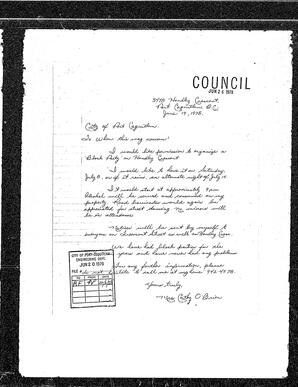 COUNCIL
JUN 26 1978
Handley Crescent,
Port Coquitlam B.C.
June 19, 1978.
City of Port Coquitlam
To Whom this may concern:
I would like permission to organize a
Block Party on Handley Crescent
I would like to have it on Saturday,
July 8, or if it rains, an alternate night of July 15.
It would start at approximately
Alcohol will be served and consumed on our
property. Road barricades would again be
appreciated for street dancing. No minors will
be in attendance.
Notices will be sent by myself to
everyone on Fremont Street as well as Handley Cres.
We have had block parties for
years and have never had any problems
any further information, please
to call me at my home 942-
Yours truly,
Mrs. Cathy O'Brien
CITY OF PORT COQUITLAM
ENGINEERING DEPT.
JUN 20 1978
FILE #